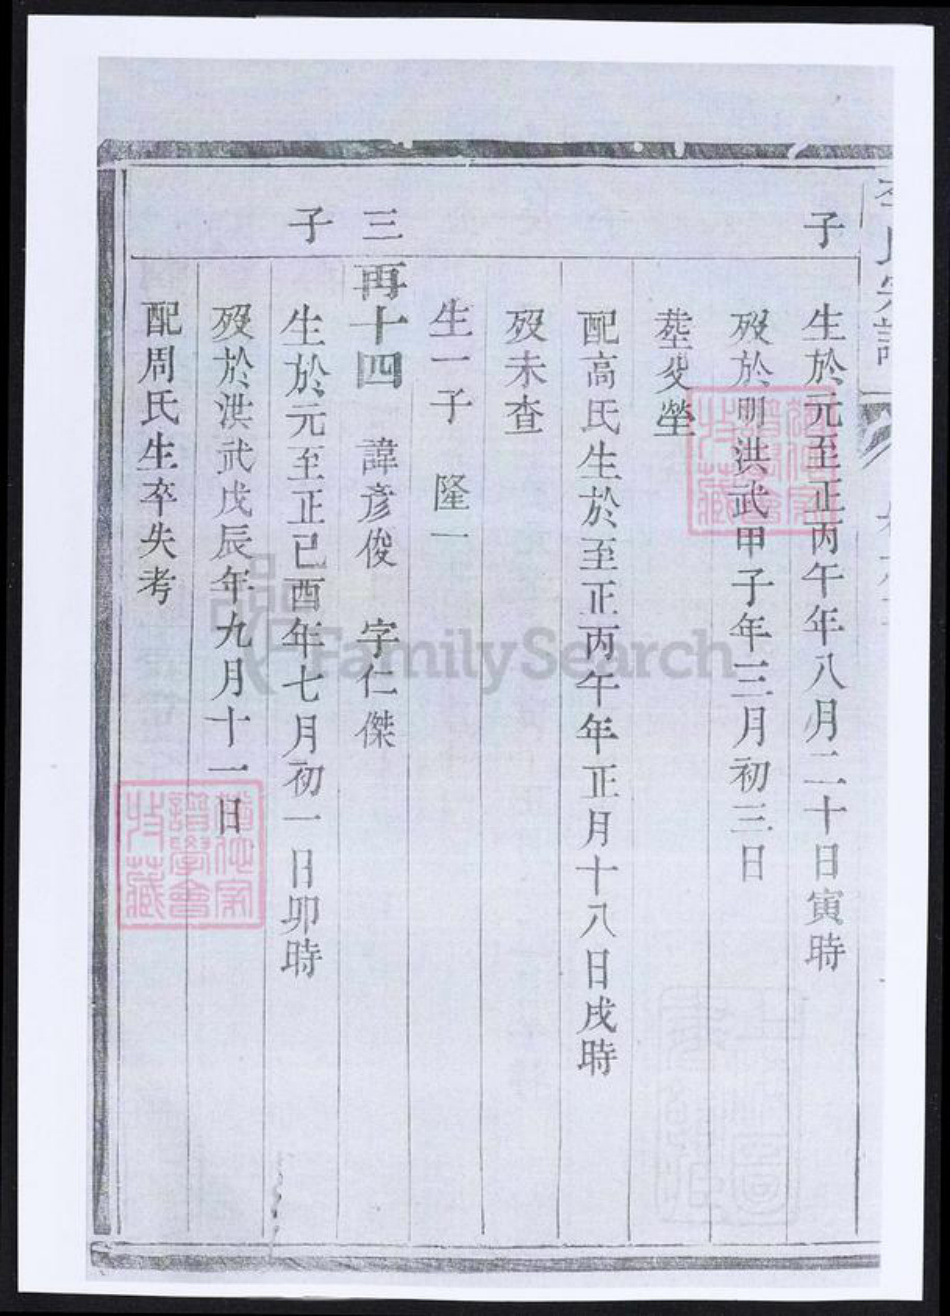 子
生於元至正丙午年八月二十日寅時
歿於明洪武甲子年三月初三日
塟父塋
配高氏生於至正丙午年正月十八日戌時
歿未查
生一子 隆一
三子
再十四 諱彥俊 字仁傑
生於元至正己酉年七月初一日卯時
歿於洪武戊辰年九月十一日
配周氏生卒失考
FamilySearch